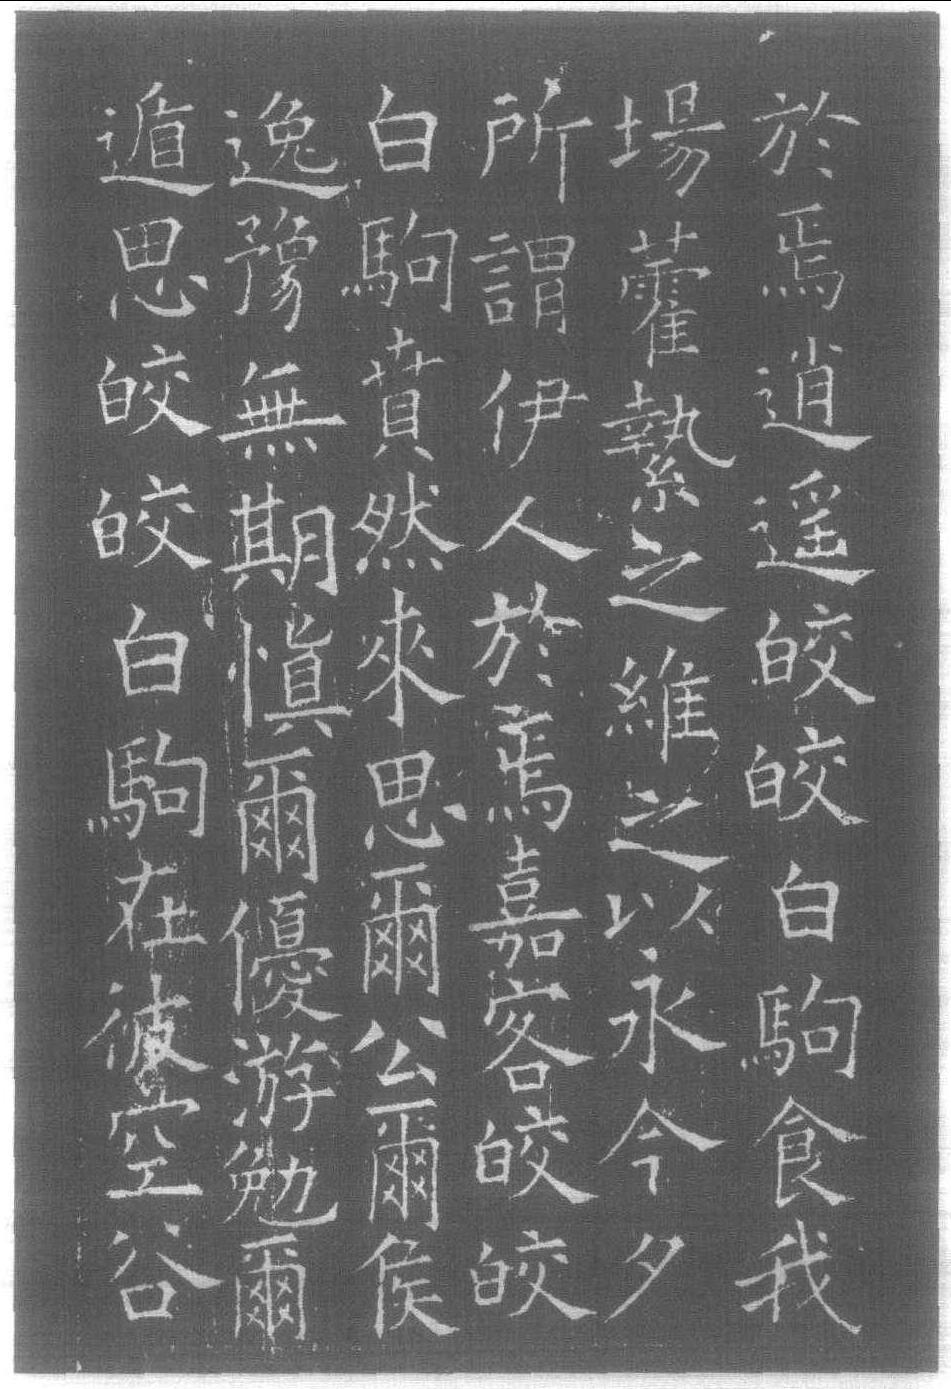 於焉逍遥皎皎白駒食我
場藿縶之維之以永今夕
所謂伊人於焉嘉客皎皎
白駒賁然來思爾公爾侯
逸豫無期慎爾優游勉爾
遁思皎皎白駒在彼空谷